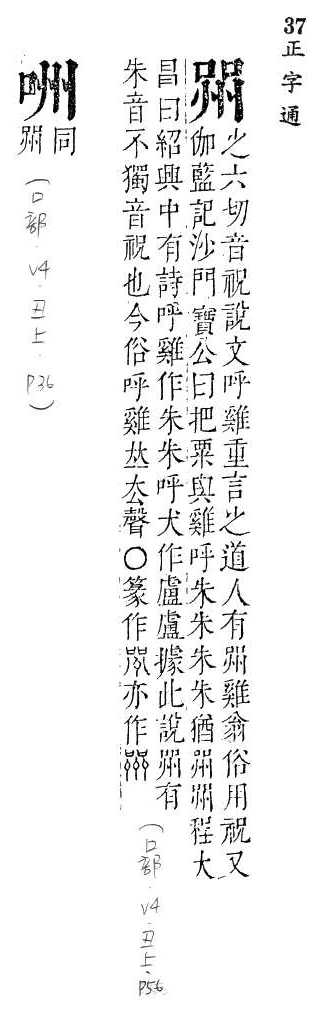 37
正字通
喌
之六切音祝說文呼雞重言之道人有喌雞翁俗用祝又
伽藍記沙門寶公曰把粟與雞呼朱朱朱朱猶喌喌程大
昌曰紹興中有詩呼雞作朱朱呼犬作盧盧據此說喌有
朱音不獨音祝也今俗呼雞聲〇篆作亦作
(口部.V4.丑上.P56)
同喌
(口部.V4.丑上.P36)